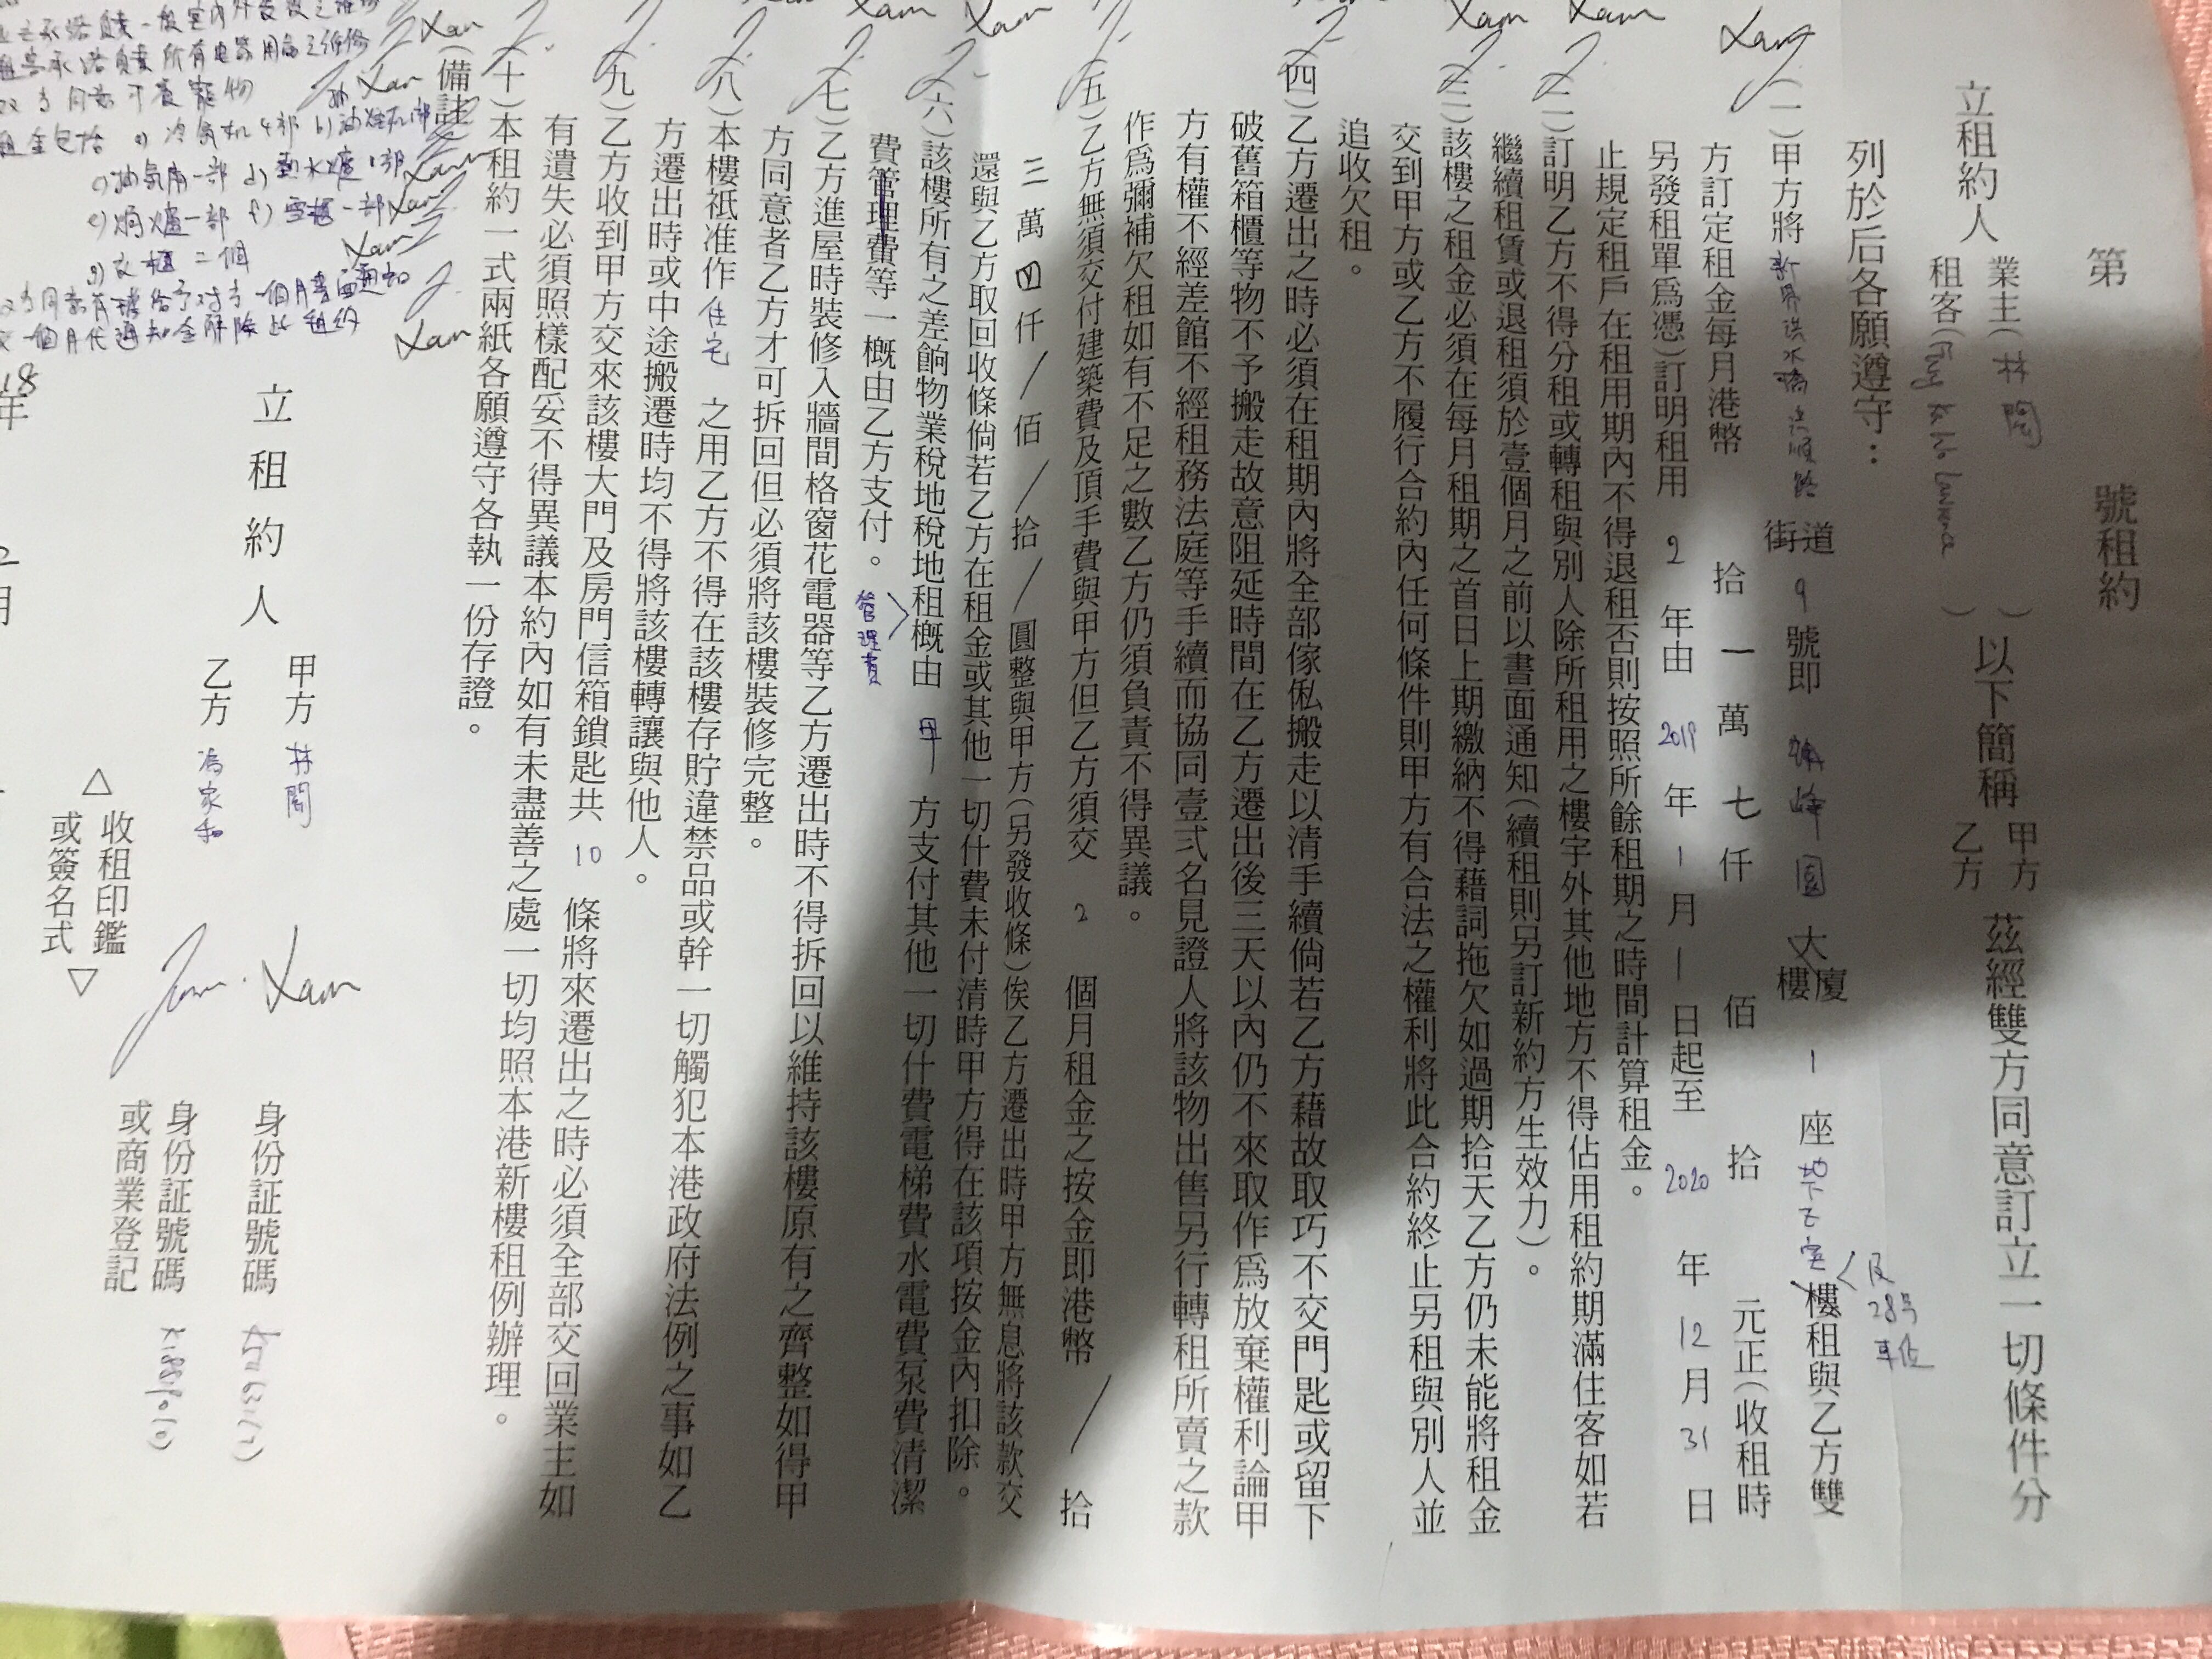 第 號租約
立租約人 業主(林閣)
租客(Fung Ka Wo)
以下簡稱 甲方 乙方 茲經雙方同意訂立一切條件分
列於后各願遵守：
(一)甲方將新界洪水橋洪順路街道9號即 峰園大廈樓1座地下乙室樓租與乙方雙
及28号車位
方訂定租金每月港幣 拾一萬七仟 佰 拾 元正(收租時
另發租單爲憑)訂明租用2年由2019年1月1日起至2020年12月31日
止規定租戶在租用期內不得退租否則按照所餘租期之時間計算租金。
(二)訂明乙方不得分租或轉租與別人除所租用之樓宇外其他地方不得佔用租約期滿住客如若
繼續租賃或退租須於壹個月之前以書面通知(續租則另訂新約方生效力)。
(三)該樓之租金必須在每月租期之首日上期繳納不得藉詞拖欠如過期拾天乙方仍未能將租金
交到甲方或乙方不履行合約內任何條件則甲方有合法之權利將此合約終止另租與別人並
追收欠租。
(四)乙方遷出之時必須在租期內將全部傢俬搬走以清手續倘若乙方藉故取巧不交門匙或留下
破舊箱櫃等物不予搬走故意阻延時間在乙方遷出後三天以內仍不來取作爲放棄權利論甲
方有權不經差館不經租務法庭等手續而協同壹弍名見證人將該物出售另行轉租所賣之款
作爲彌補欠租如有不足之數乙方仍須負責不得異議。
(五)乙方無須交付建築費及頂手費與甲方但乙方須交2個月租金之按金即港幣/拾
三萬四仟/佰/拾/圓整與甲方(另發收條)俟乙方遷出時甲方無息將該款交
還與乙方取回收條倘若乙方在租金或其他一切什費未付清時甲方得在該項按金內扣除。
(六)該樓所有之差餉物業稅地稅地租概由甲方支付其他一切什費電梯費水電費泵費清潔
管理費
費管理費等一概由乙方支付。
(七)乙方進屋時裝修入牆間格窗花電器等乙方遷出時不得拆回以維持該樓原有之齊整如得甲
方同意者乙方才可拆回但必須將該樓裝修完整。
(八)本樓祇准作住宅之用乙方不得在該樓存貯違禁品或幹一切觸犯本港政府法例之事如乙
方遷出時或中途搬遷時均不得將該樓轉讓與他人。
(九)乙方收到甲方交來該樓大門及房門信箱鎖匙共10條將來遷出之時必須全部交回業主如
有遺失必須照樣配妥不得異議本約內如有未盡善之處一切均照本港新樓租例辦理。
(十)本租約一式兩紙各願遵守各執一份存證。
(備註)
承諾負責一般室內外設設之維修
承諾負責所有电器用品之維修
双方同意不養寵物
租金包括 a)冷氣机4部 b)抽 1部
c)抽氣扇一部 d)熱水爐1部
e)焗爐一部 f)雪櫃一部
g)衣櫃二個
双方同意有權給予对方一個月書面通知
一個月代通知金解除此租約
立租約人
甲方 林閣 Lam 身份証號碼
乙方 馮家和 身份証號碼 或商業登記
△收租印鑑或簽名式▽
18
年
2
月